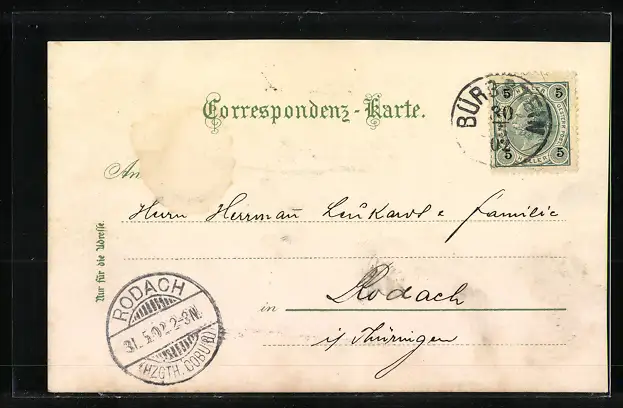 Correspondenz-Karte.
An
Herrn Herrmañ Leukard & Familie
in Rodach
i/Thüringen
Nur für die Adresse.
5 5
5 HELLER 5
30
02
RODACH
31.5.02.2-3N.
(HZGTH. COBURG)